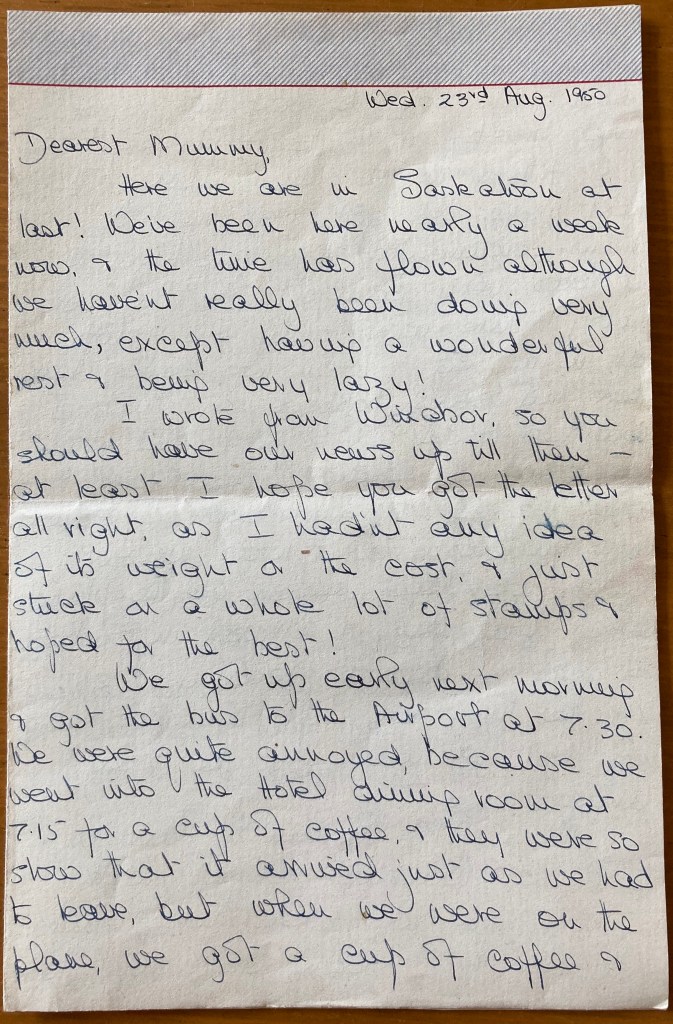 Wed. 23rd Aug. 1950
Dearest Mummy,
Here we are in Saskatoon at
last! We've been here nearly a week
now, & the time has flown although
we haven't really been doing very
much, except having a wonderful
rest & being very lazy!
I wrote from Windsor, so you
should have our news up till then –
at least I hope you got the letter
all right, as I hadn't any idea
of its weight or the cost, & just
stuck on a whole lot of stamps &
hoped for the best!
We got up early next morning
& got the bus to the Airport at 7.30.
We were quite annoyed, because we
went into the Hotel dining room at
7.15 for a cup of coffee, & they were so
slow that it arrived just as we had
to leave, but when we were on the
plane, we got a cup of coffee &